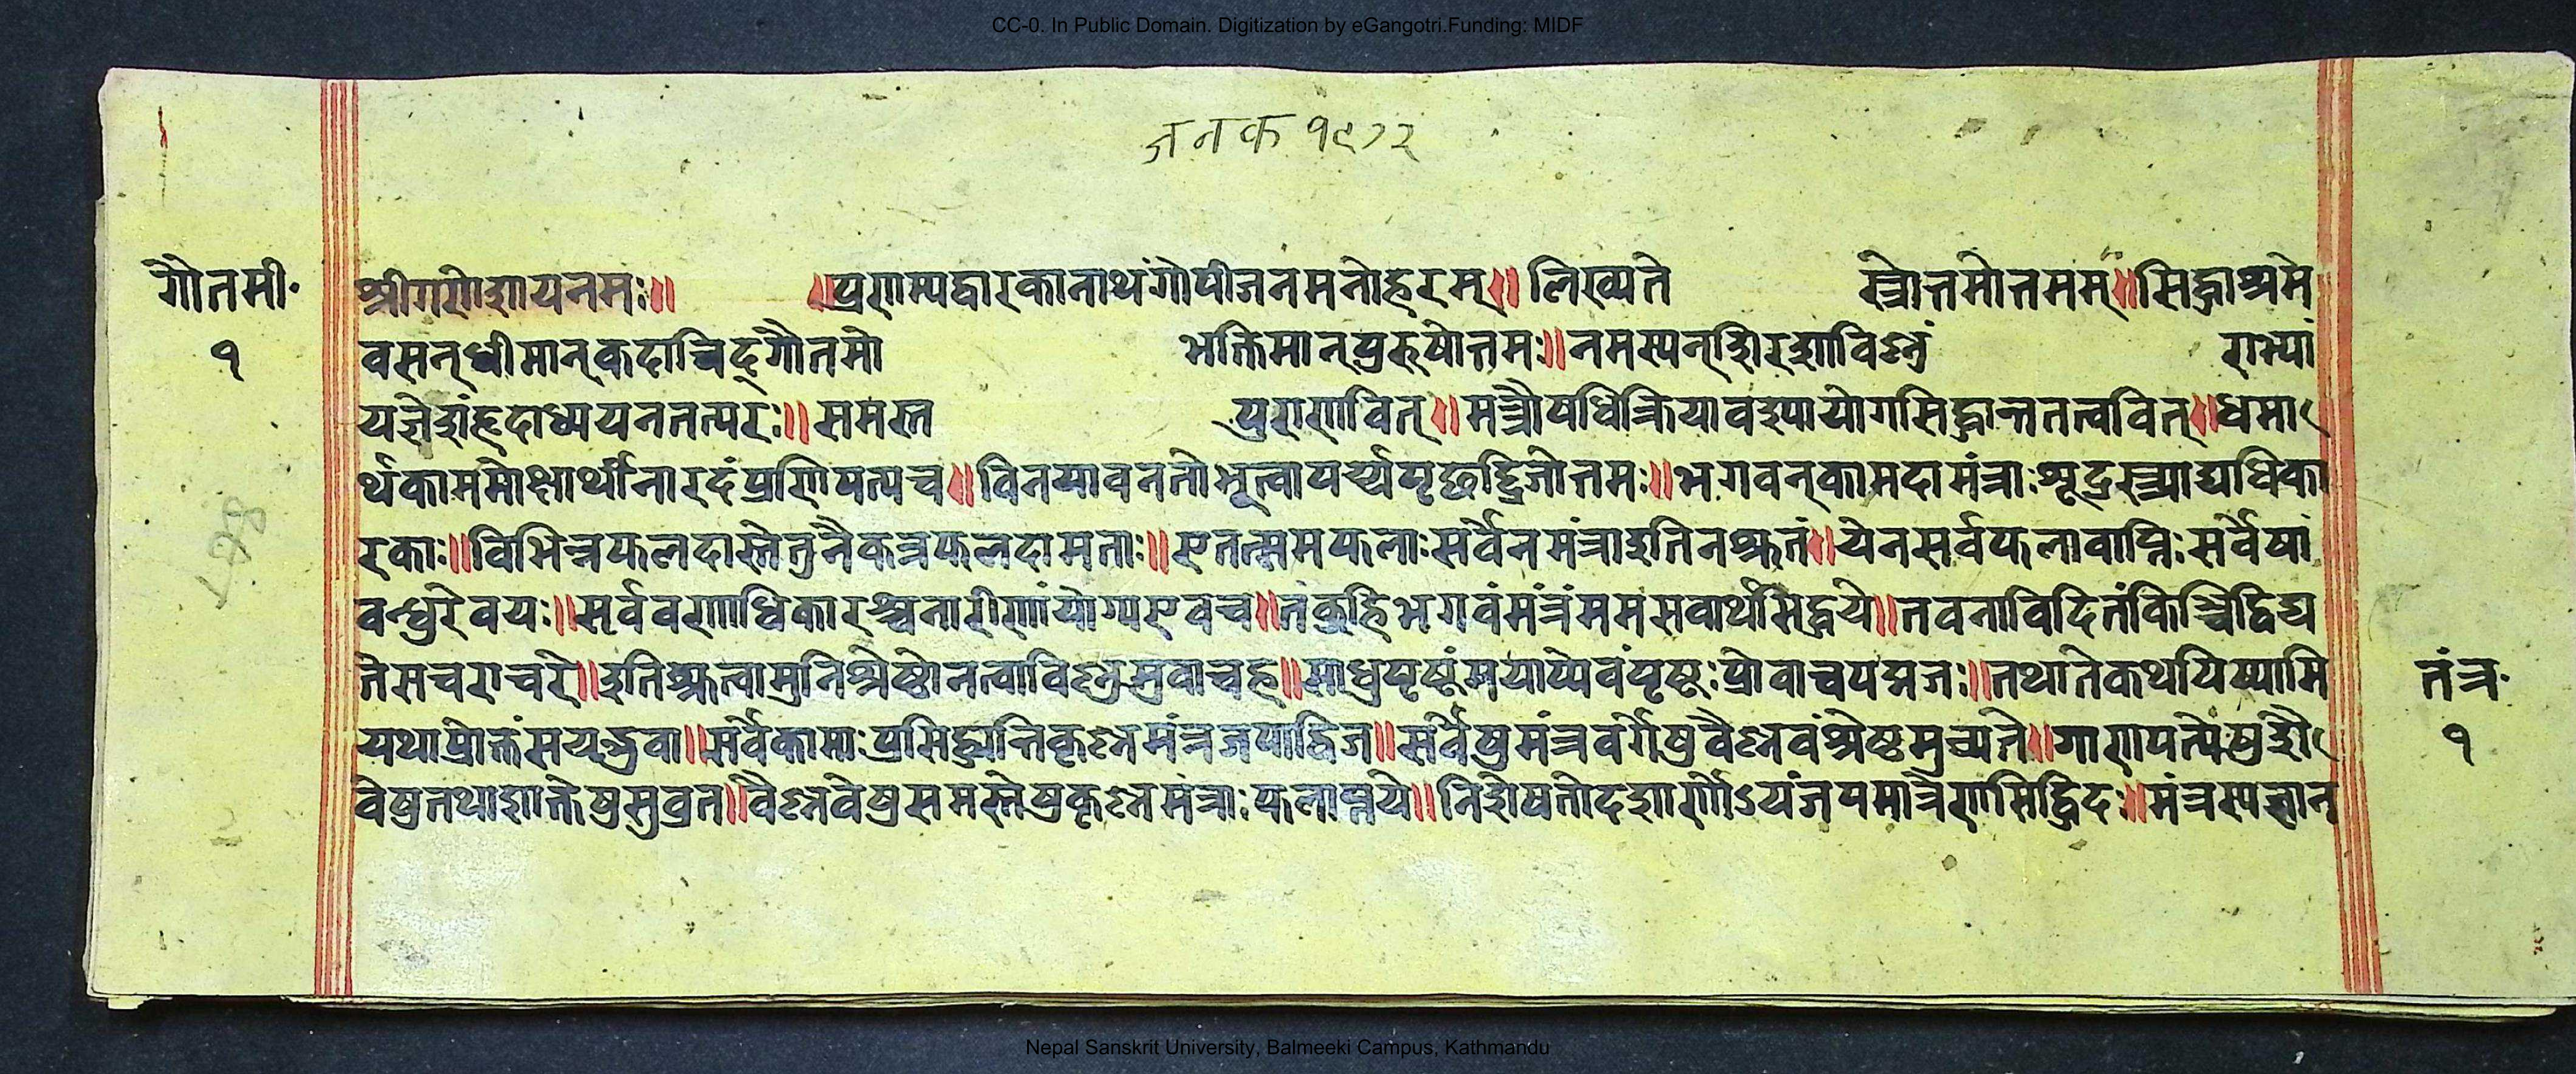 CC-0. In Public Domain. Digitization by eGangotri.Funding: MIDF
जनक १९७२
गौतमी॰ १
श्रीगणेशायनमः॥ ॥प्रणम्यद्वारकानाथंगोपीजनमनोहरम्॥लिख्यते स्त्रोत्तमोत्तमम्॥सिद्धाश्रमे
वसन्धीमान्कदाचिद्गौतमो भक्तिमान्पुरुषोत्तमः॥नमस्यन्शिरशाविष्णुं राभ्यां
यजेशंहृदाध्ययनतत्परः॥समस्त पुराणवित्॥मन्त्रौषधिक्रियावश्पायोगसिद्धान्ततत्ववित्॥धर्मा
र्थकाममोक्षार्थीनारदंप्रणिपत्यच॥विनयावनतोभूत्वापर्य्यपृछद्द्विजोत्तमः॥भगवन्कामदामंत्राःशूद्रस्त्र्याद्यधिका
रकाः॥विभिन्नफलदास्तेतुनैकत्रफलदामताः॥एतत्समफलाःसर्वेनमंत्राइतिनश्रुतं॥येनसर्वफलावाप्तिःसर्वेषां
वन्धुरेवयः॥सर्ववर्णाधिकारश्चनारीणांयोग्यएवच॥तंब्रुहिभगवंमंत्रंममसर्वार्थसिद्धये॥तवनाविदितंकिञ्चिद्विद्य
तेसचराचरे॥इतिश्रुत्वामुनिश्रेष्ठोनत्वाविष्णुमुवाचह॥साधुपृष्टंमयाप्येवंपृष्टःप्रोवाचपद्मजः॥तथातेकथयिष्यामि
यथाप्रोक्तंस्वयम्भुवा॥सर्वेकामाःप्रसिद्ध्यन्तिकृष्णमंत्रजपाद्विज॥सर्वेषुमंत्रवर्गेषुवैष्णवंश्रेष्ठमुच्यते॥गाणपत्येषुशै
वेषुतथाशाक्तेषुसुव्रत॥वैष्णवेषुसमस्तेषुकृष्णमंत्राःफलाप्तये॥निर्शेषतोदशार्णोऽयंजपमात्रेणसिद्धिदः॥मंत्रस्यज्ञान
तंत्र॰ १
Nepal Sanskrit University, Balmeeki Campus, Kathmandu